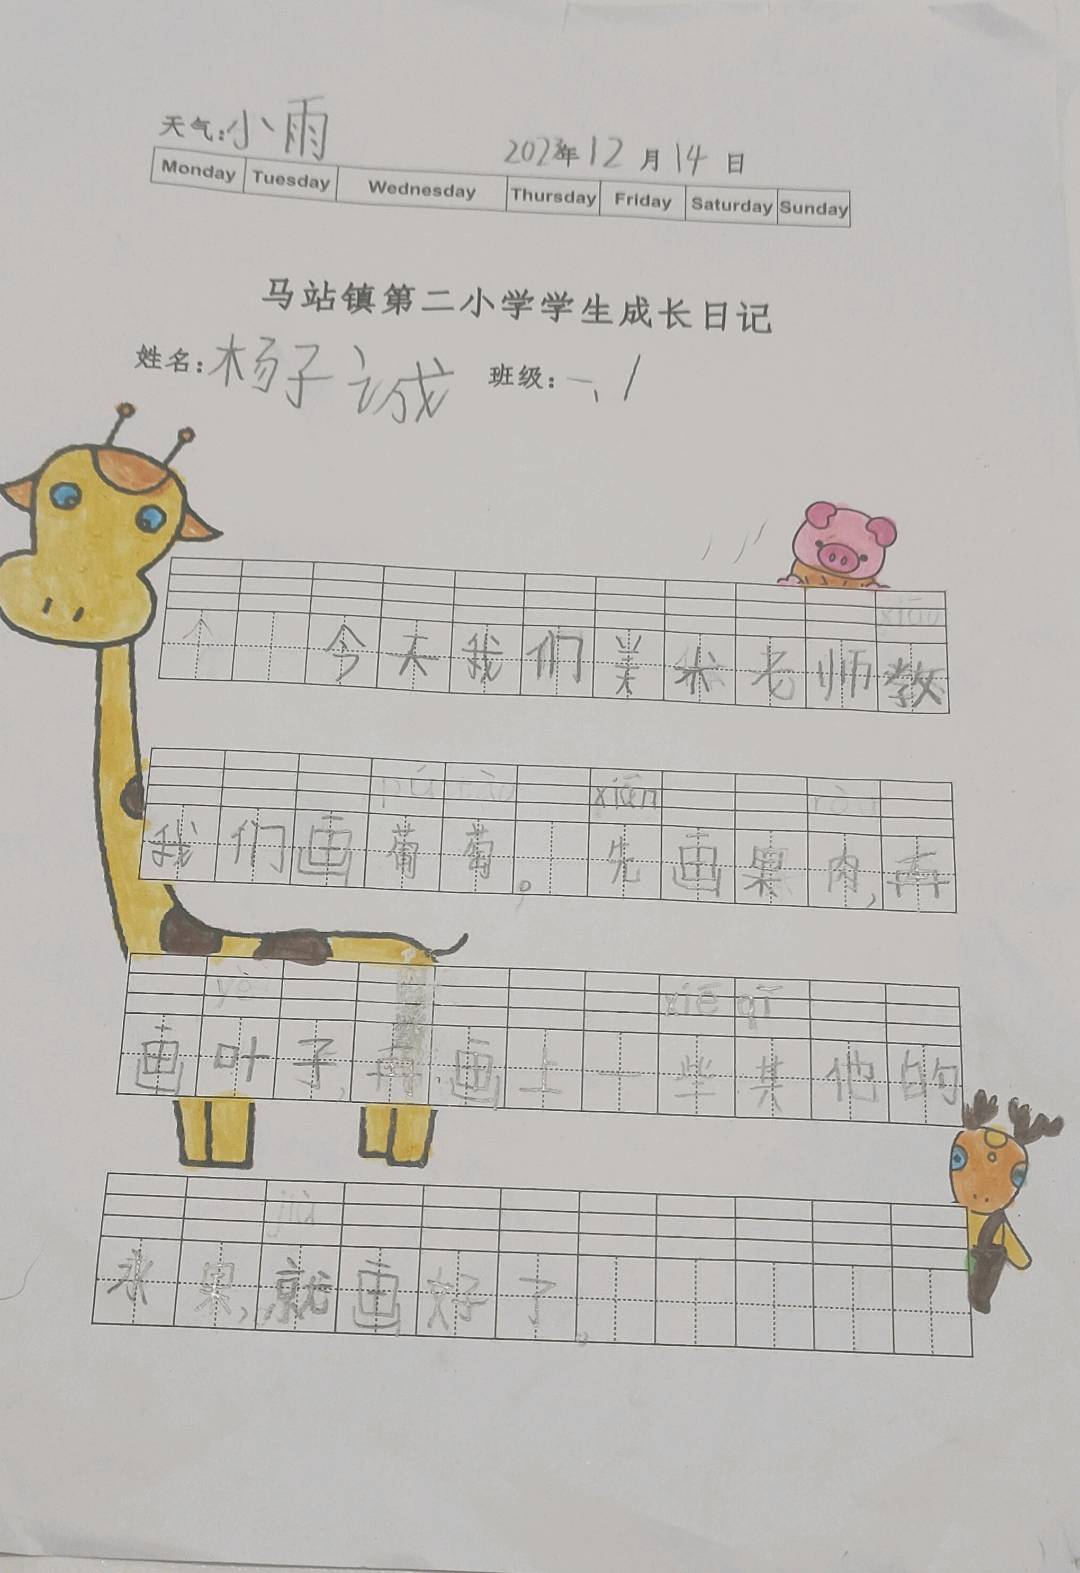 天气:小雨 2023年12月14日
Monday Tuesday Wednesday Thursday Friday Saturday Sunday
马站镇第二小学学生成长日记
姓名:杨子诚 班级:一、1
今天我们美术老师教
xiān
我们画葡萄。先画果肉,再
yè xiē qí
画叶子,再画上一些其他的
jiù
水果,就画好了。